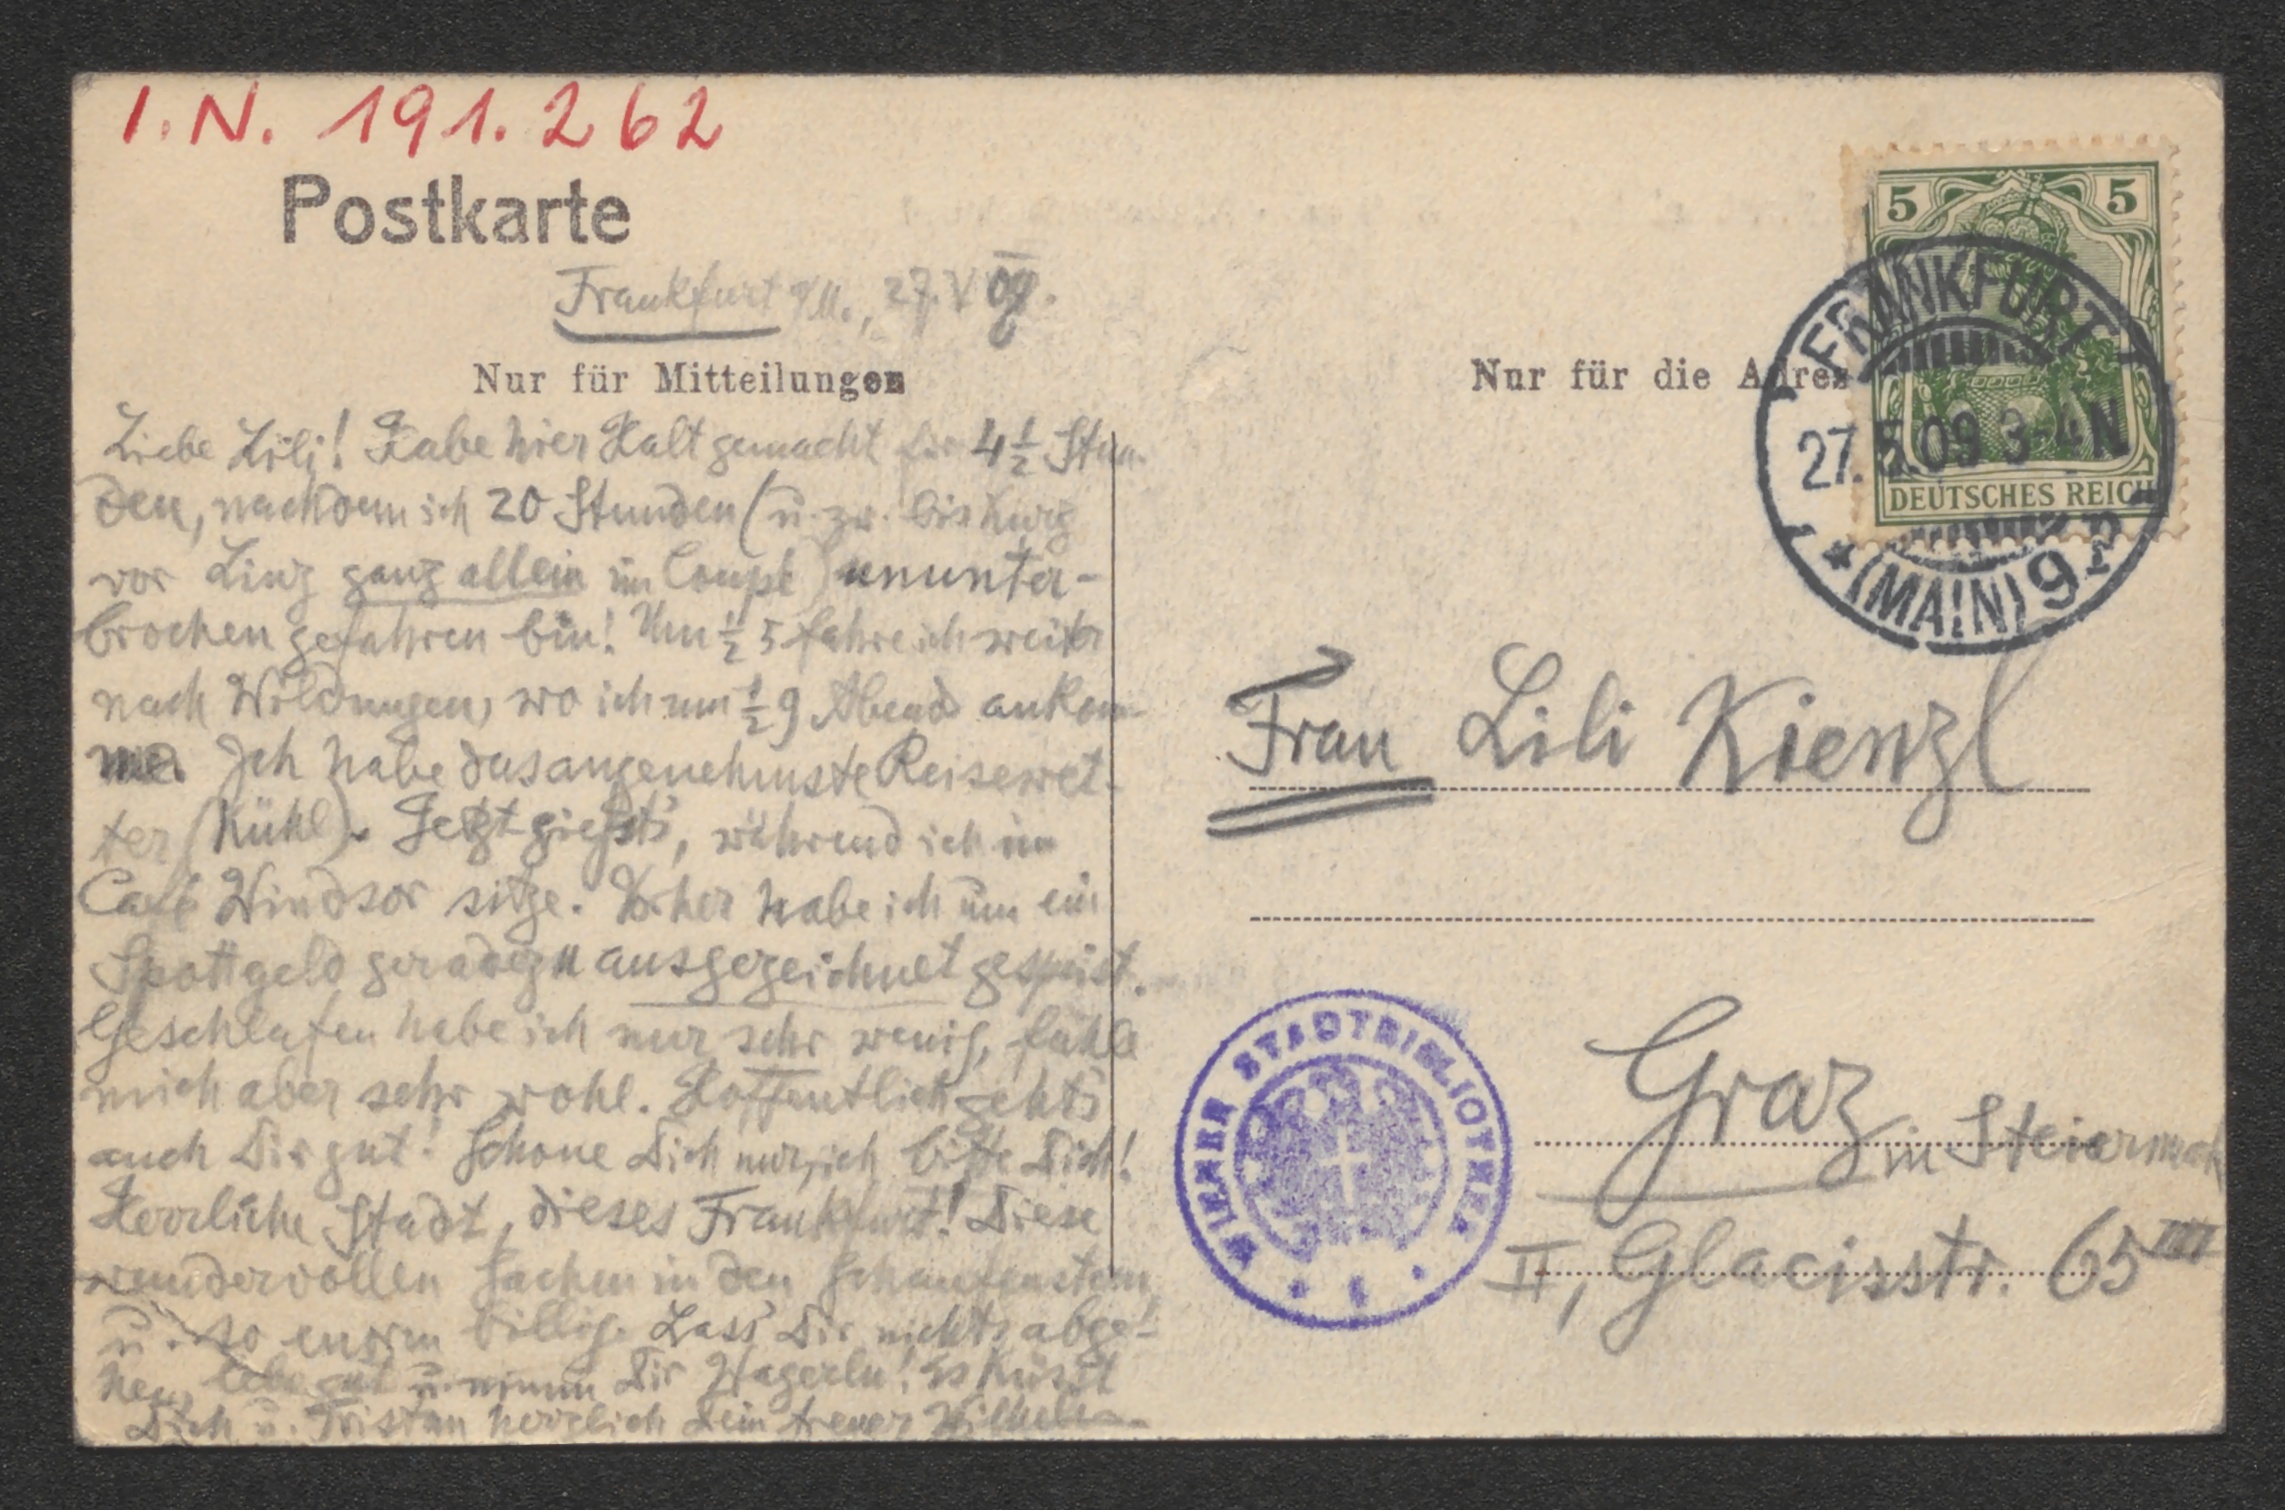 I.N. 191.262
Postkarte
Frankfurt a/M., 27. V 09.
Nur für Mitteilungen
Liebe Lili! Habe hier Halt gemacht für 4 1/2 Stun-
den, nachdem ich 20 Stunden (u. zw. bis kurz
vor Linz ganz allein im Coupé) ununter-
brochen gefahren bin! Um 1/2 5 fahre ich weiter
nach Wildungen, wo ich um 1/2 9 Abend ankom-
me. Ich habe das angenehmste Reisewet-
ter (Kühl). Jetzt giesst's, während ich im
Café Windsor sitze. Vorher habe ich um ein
Spottgeld geradezu ausgezeichnet gespeist.
Geschlafen habe ich nur sehr wenig, fühle
mich aber sehr wohl. Hoffentlich geht's
auch Dir gut! Schone Dich nur, ich bitte Dich!
Herrliche Stadt, dieses Frankfurt! Diese
wundervollen Sachen in den Schaufenstern
u. so enorm billig. Lass' Dir nichts abge-
hen, lebe gut u. nimm Dir Wagerln! Es küsst
Dich u. Tristan herzlich Dein treuer Wilhelm
5 5
DEUTSCHES REICH
FRANKFURT
27.5.09 3-4N
* (MAIN) 9
Nur für die Adres
Frau Lili Kienzl
Graz in Steiermark
II, Glacisstr. 65 III
WIENER STADTBIBLIOTHEK